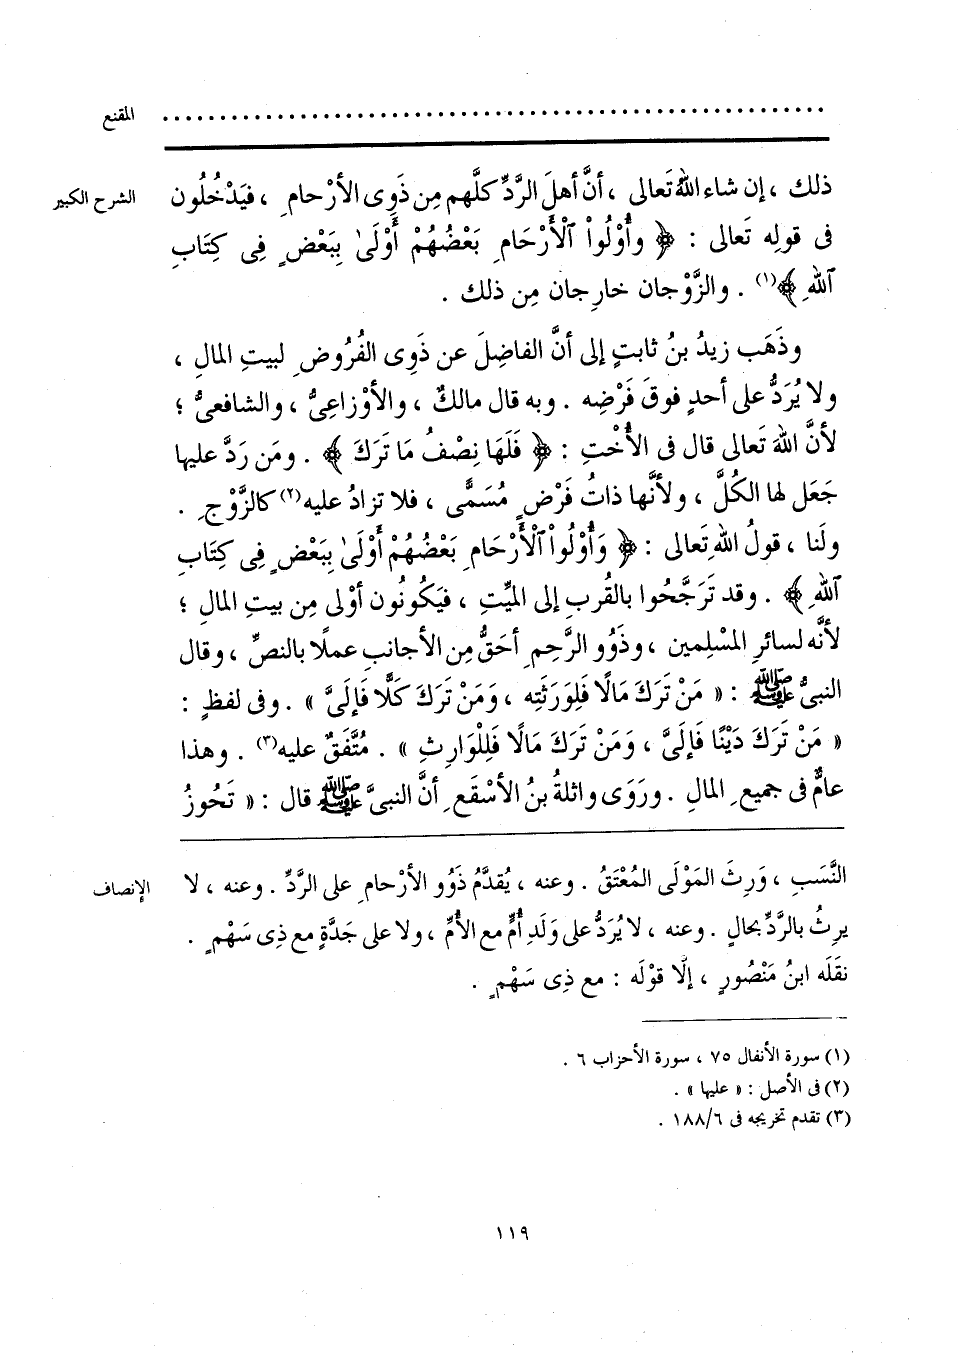 المقنع ..........................................................
الشرح الكبير
ذلك ، إن شاء اللهُ تَعالى ، أنَّ أهلَ الرَّدِّ كلَّهم مِن ذَوِى الأرْحامِ ، فيَدْخُلُون
فى قولِه تَعالى : ﴿ وأُوْلُواْ ٱلْأَرْحَامِ بَعْضُهُمْ أَوْلَىٰ بِبَعْضٍ فِى كِتَابِ
ٱللهِ ﴾(١) . والزَّوْجان خارِجان مِن ذلك .
وذَهَب زيدُ بنُ ثابتٍ إلى أنَّ الفاضِلَ عن ذَوِى الفُرُوضِ لبيتِ المالِ ،
ولا يُرَدُّ على أحدٍ فوقَ فَرْضِه . وبه قال مالكٌ ، والأوْزاعِىُّ ، والشافعىُّ ؛
لأنَّ اللهَ تَعالى قال فى الأُخْتِ : ﴿ فَلَهَا نِصْفُ مَا تَرَكَ ﴾ . ومَن رَدَّ عليها
جَعَل لها الكُلَّ ، ولأنَّها ذاتُ فَرْضٍ مُسَمًّى ، فلا تزادُ عليه(٢) كالزَّوْجِ .
ولَنا ، قولُ اللهِ تَعالى : ﴿ وَأُوْلُواْ ٱلْأَرْحَامِ بَعْضُهُمْ أَوْلَىٰ بِبَعْضٍ فِى كِتَابِ
ٱللهِ ﴾ . وقد تَرَجَّحُوا بالقُربِ إلى الميِّتِ ، فيَكُونُون أوْلى مِن بيتِ المالِ ؛
لأنَّه لسائرِ المسْلِمين ، وذَوُو الرَّحِمِ أحَقُّ مِن الأجانبِ عملًا بالنصِّ ، وقال
النبىُّ ﷺ : « مَنْ تَرَكَ مَالًا فَلِوَرَثَتِه ، وَمَنْ تَرَكَ كَلًّا فَإلَىَّ » . وفى لفظٍ :
« مَنْ تَرَكَ دَيْنًا فَإلَىَّ ، وَمَنْ تَرَكَ مَالًا فَلِلْوَارِثِ » . مُتَّفَقٌ عليه(٣) . وهذا
عامٌّ فى جميعِ المالِ . ورَوَى واثلةُ بنُ الأسْقَعِ أنَّ النبىَّ ﷺ قال : « تَحُوزُ
الإنصاف
النَّسَبِ ، وَرِثَ المَوْلَى المُعْتَقُ . وعنه ، يُقدَّمُ ذَوُو الأرْحامِ على الرَّدِّ . وعنه ، لا
يرِثُ بالرَّدِّ بحالٍ . وعنه ، لا يُرَدُّ على وَلَدِ أُمٍّ مع الأُمِّ ، ولا على جَدَّةٍ مع ذِى سَهْمٍ .
نقَلَه ابنُ مَنْصُورٍ ، إلَّا قوْلَه : مع ذِى سَهْمٍ .
(١) سورة الأنفال ٧٥ ، سورة الأحزاب ٦ .
(٢) فى الأصل : « عليها » .
(٣) تقدم تخريجه فى ١٨٨/٦ .
١١٩